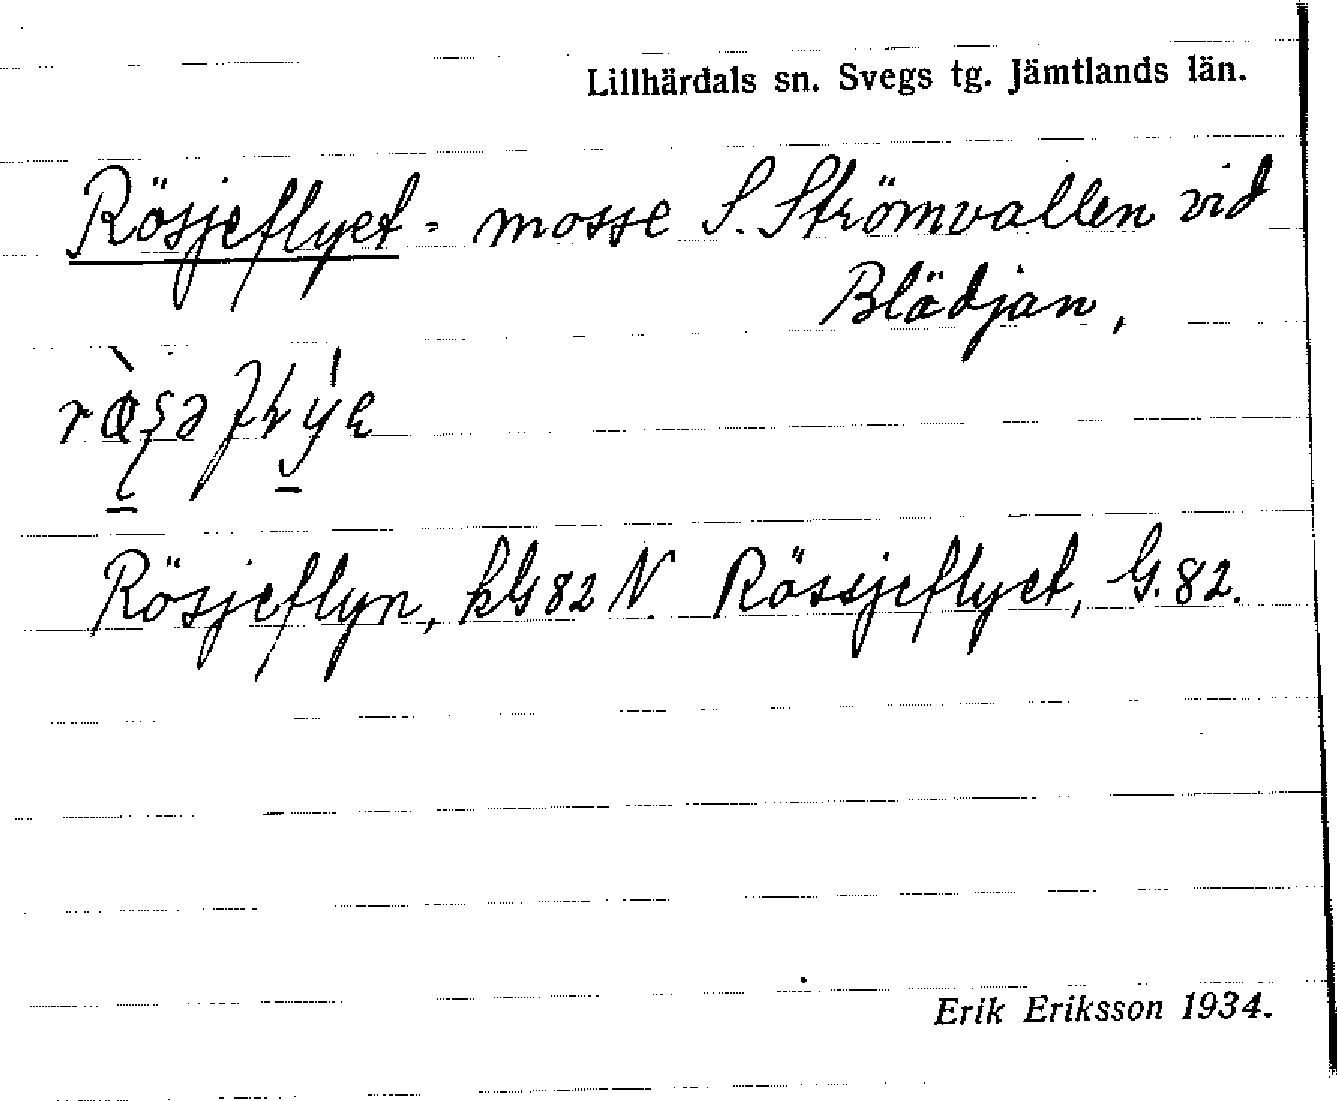 Lillhärdals sn. Svegs tg. Jämtlands län.
Rösjeflyet - mosse S. Strömvallen vid
Blädjan,
Rösjeflyn, kG82 N. Rössjeflyet, G. 82.
Erik Eriksson 1934.